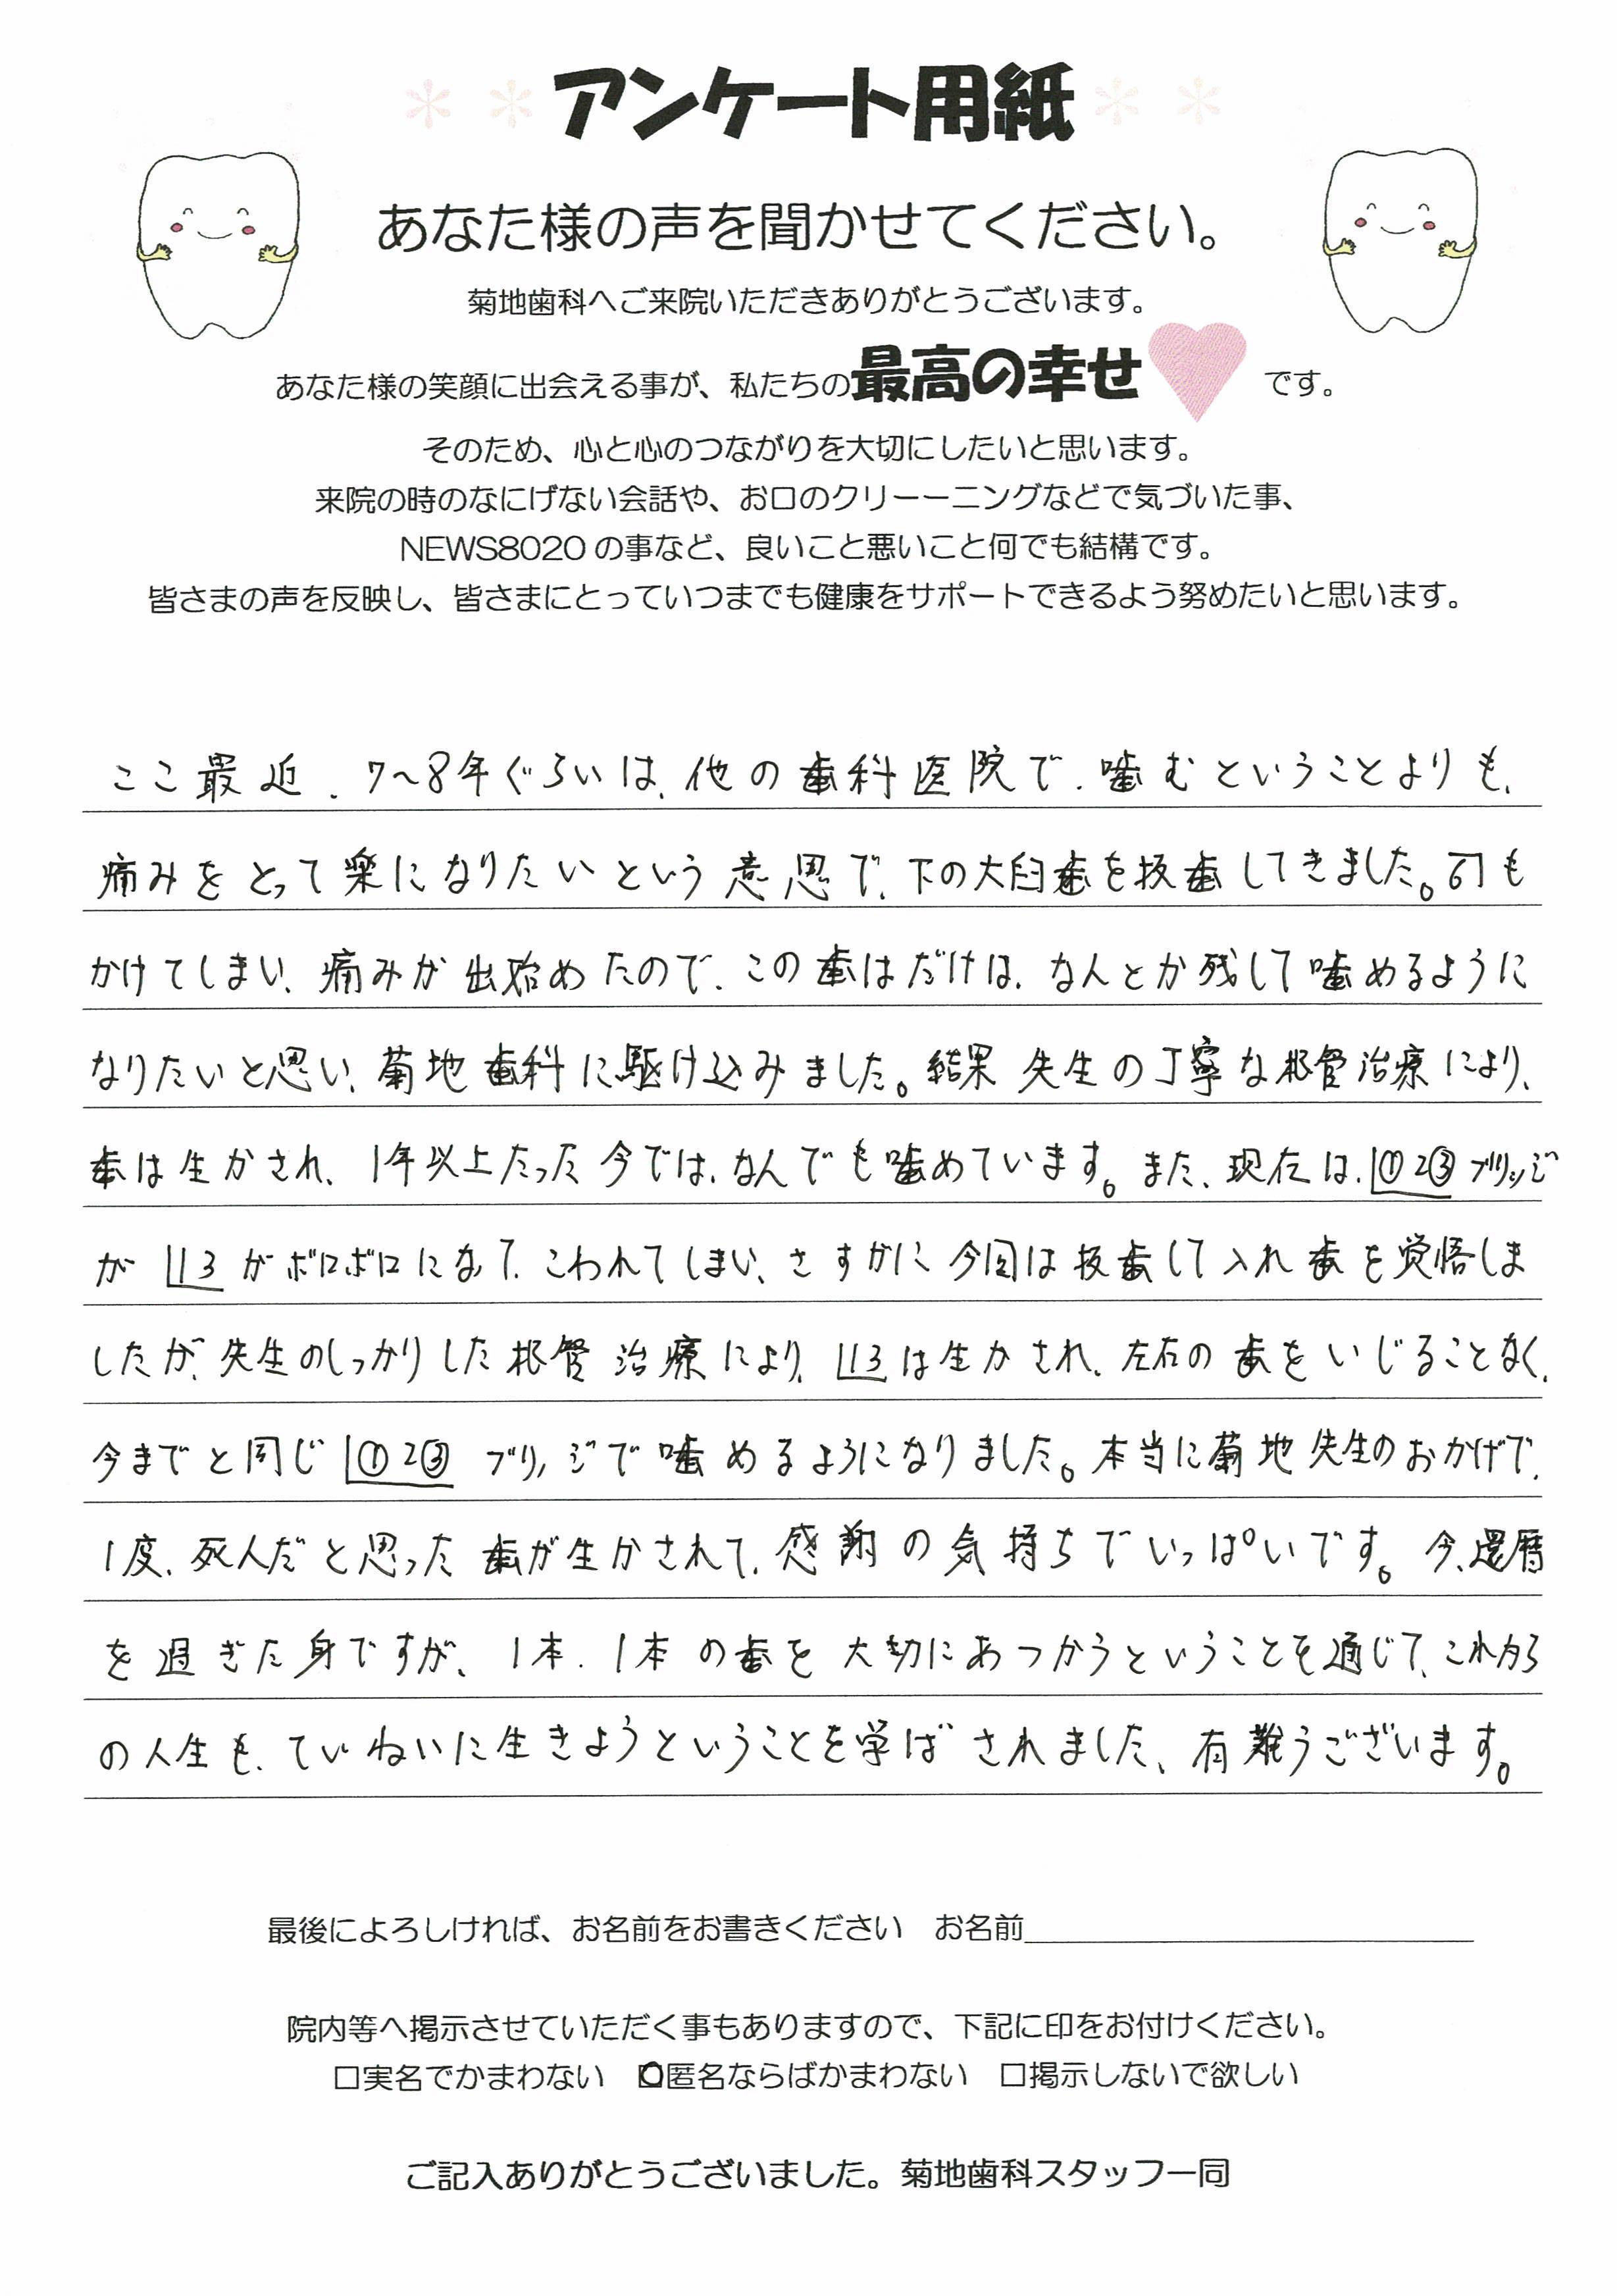 アンケート用紙
あなた様の声を聞かせてください。
菊地歯科へご来院いただきありがとうございます。
あなた様の笑顔に出会える事が、私たちの最高の幸せです。
そのため、心と心のつながりを大切にしたいと思います。
来院の時のなにげない会話や、お口のクリーーニングなどで気づいた事、
NEWS8020の事など、良いこと悪いこと何でも結構です。
皆さまの声を反映し、皆さまにとっていつまでも健康をサポートできるよう努めたいと思います。
ここ最近、7～8年ぐらいは、他の歯科医院で、噛むということよりも、
痛みをとって楽になりたいという意思で、下の大臼歯を抜歯してきました。6┐も
かけてしまい、痛みが出始めたので、この歯はだけは、なんとか残して噛めるように
なりたいと思い、菊地歯科に駆け込みました。結果 先生の丁寧な根管治療により、
歯は生かされ、1年以上たった今では、なんでも噛めています。また、現在は、└①2③ブリッジ
が └13がボロボロになって、こわれてしまい、さすがに今回は抜歯して入れ歯を覚悟しま
したが、先生のしっかりした根管治療により、└13は生かされ、左右の歯をいじることなく、
今までと同じ└①2③ ブリッジで噛めるようになりました。本当に菊地先生のおかげで、
1度、死んだと思った歯が生かされて、感謝の気持ちでいっぱいです。今、還暦
を過ぎた身ですが、1本、1本の歯を大切にあつかうということを通じて、これから
の人生も、ていねいに生きようということを学ばされました、有難うございます。
最後によろしければ、お名前をお書きください お名前
院内等へ掲示させていただく事もありますので、下記に印をお付けください。
□実名でかまわない □匿名ならばかまわない □掲示しないで欲しい
ご記入ありがとうございました。菊地歯科スタッフ一同